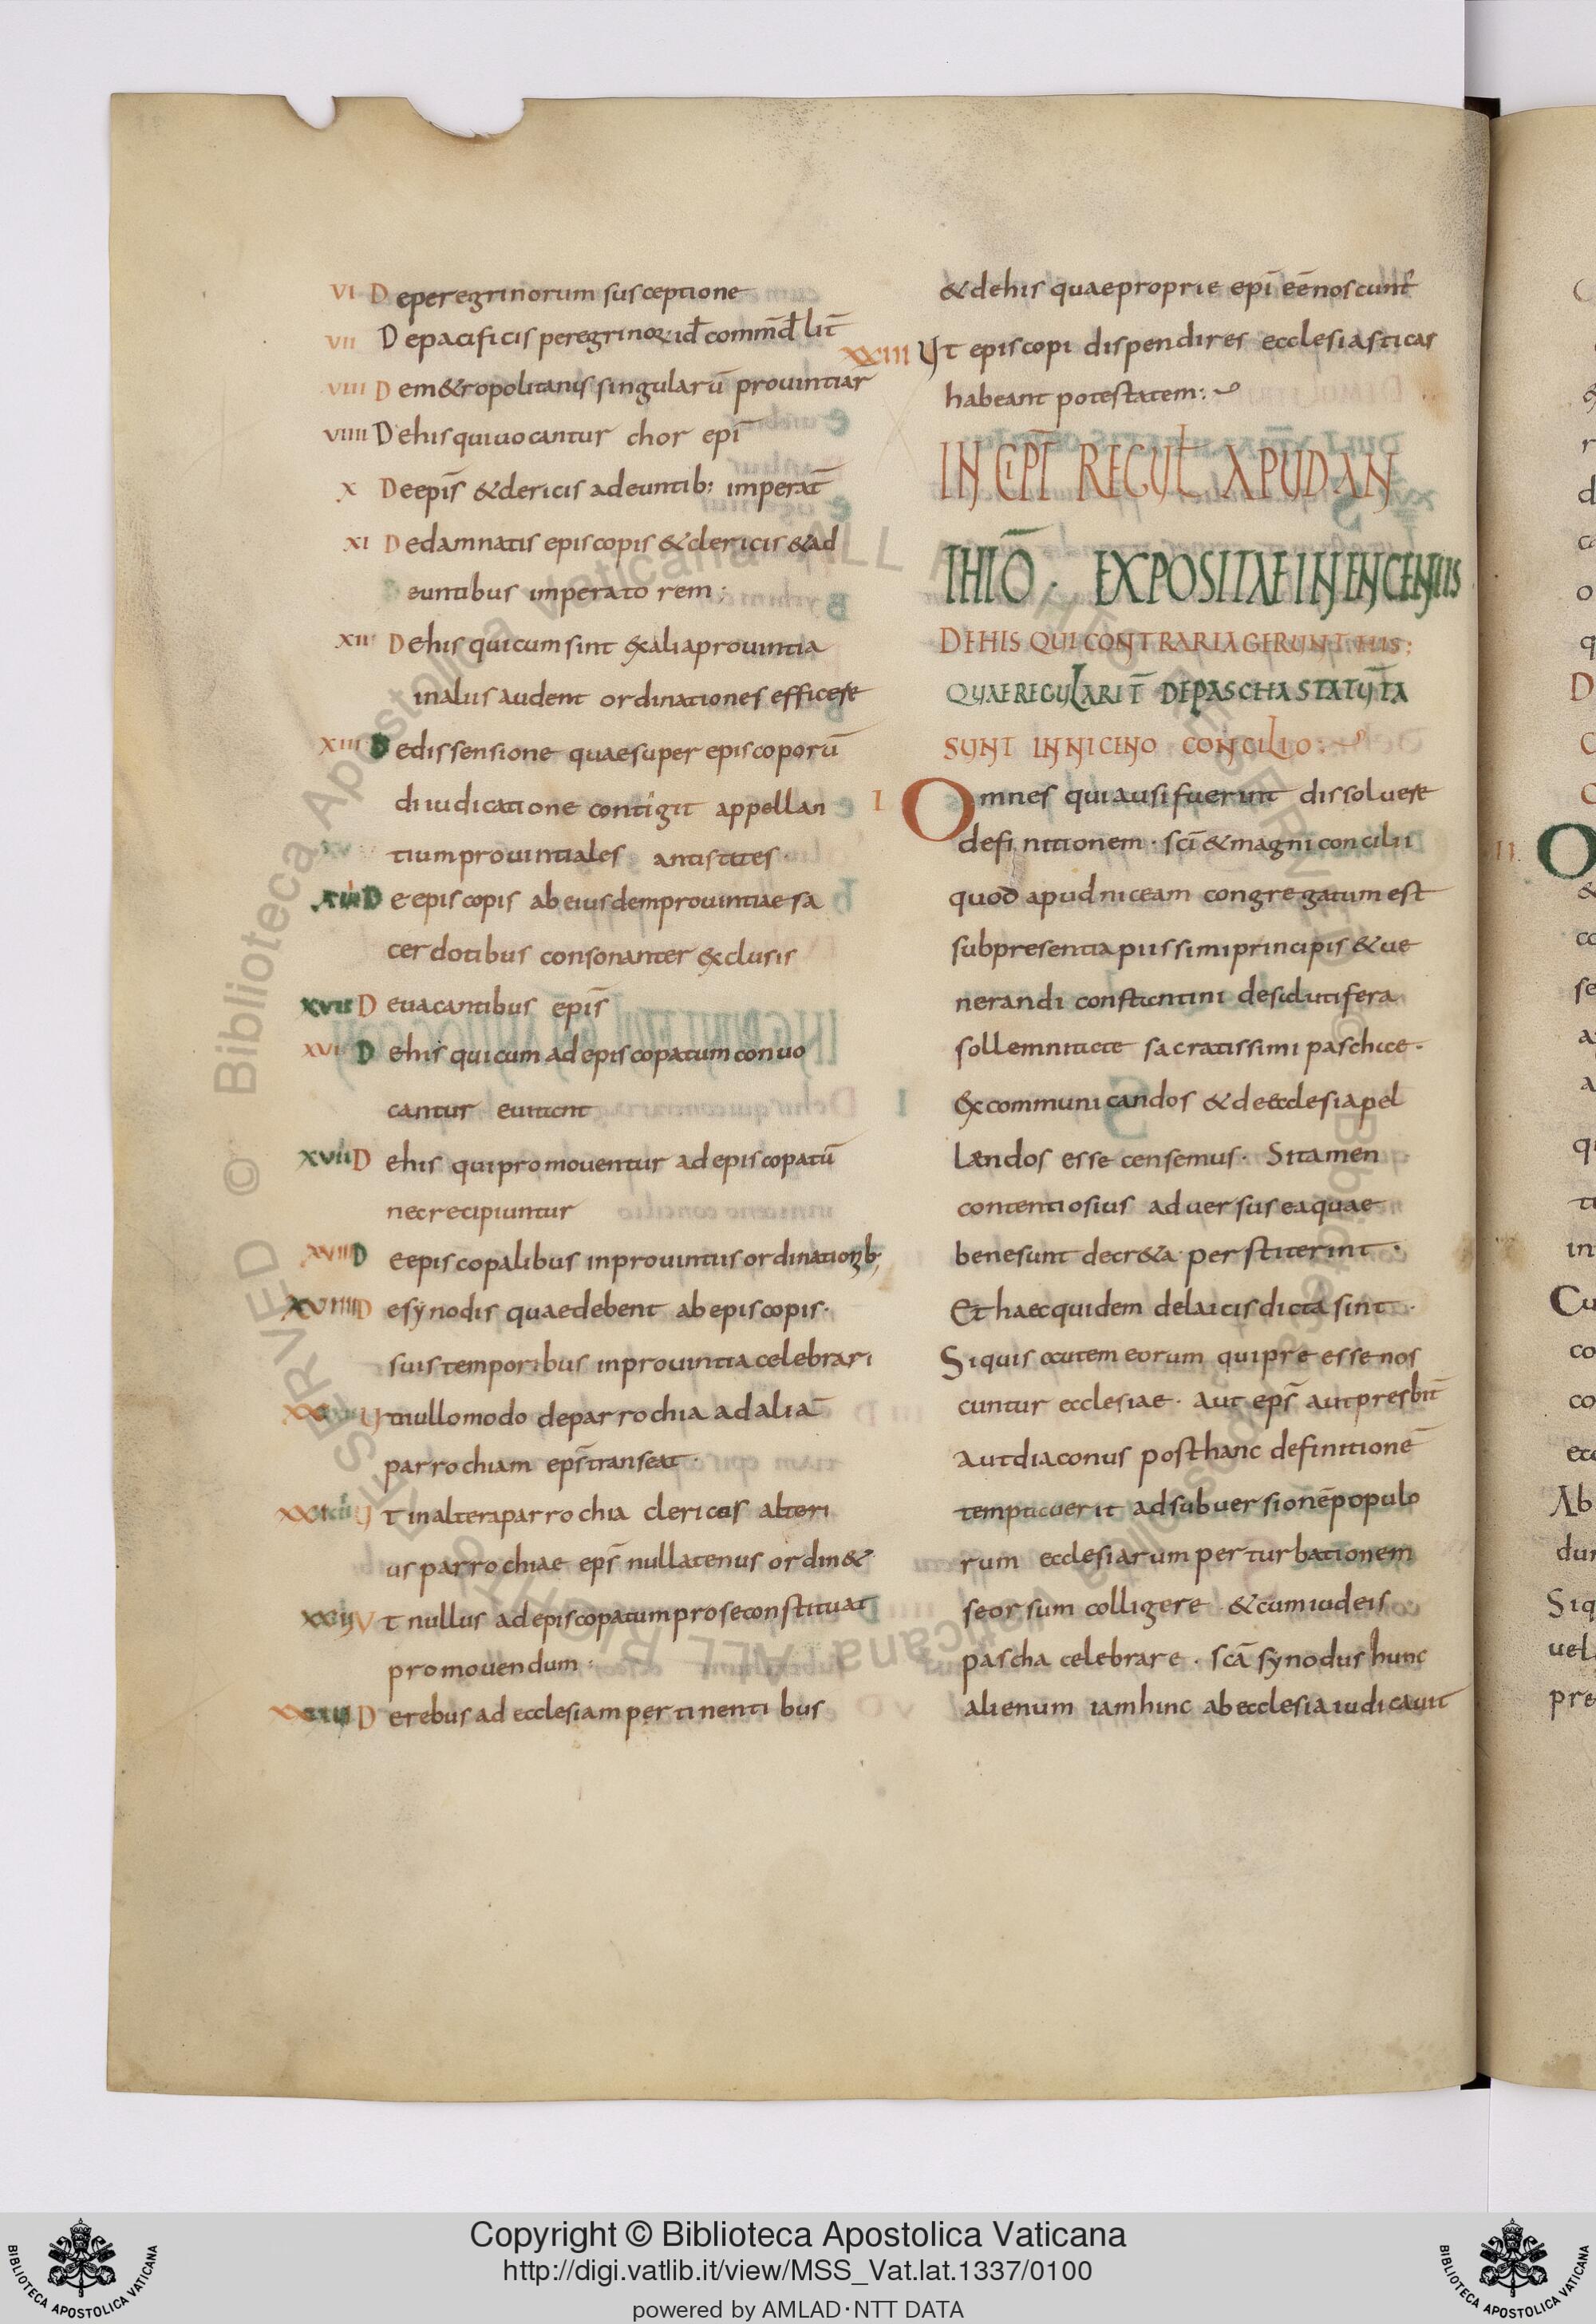 VI De peregrinorum susceptione
VII De pacificis peregrinoꝝ id÷ commd̄ lit̄
VIII De metropolitanis singularū prouintiar
VIIII De his qui uocantur chor epi̅
X De epi̅s & clericis adeuntib; imperat̄
XI De damnatis episcopis & clericis & ad
euntibus imperatorem ·
XII De his qui cum sint ex alia prouintia
in aliis audent ordinationes efficere
XIII De dissensione quae super episcoporū
diiudicatione contigit appellan
tium prouintiales antistites ·
De episcopis ab eiusdem prouintiae sa
cerdotibus consonanter exclusis
XVII De uacantibus epi̅s
XVI De his qui cum ad episcopatum conuo
cantur
XVII De his qui promouentur ad episcopatū
nec recipiuntur
De episcopalibus in prouintiis ordinationib;
XVIIII De synodis quae debent ab episcopis ·
suis temporibus in prouintia celebrari
Ut nullo modo de parrochia ad aliā
parrochiam eps̄ transeat ·
Ut in altera parrochia clericus alteri
us parrochiae eps̄ nullatenus ordin&
Ut nullus ad episcopatum pro se constituat
promouendum ·
De rebus ad ecclesiam pertinentibus
& de his quae proprie epi̅ ee̅ noscunt̄
XXIII Ut episcopi dispendi res ecclesiasticas
habeant potestatem :
INCIPI̅ REGUL̄ APUD AN
THIŌ · EXPOSITAE IN ENCENIIS
DE HIS QUI CONTRARIA GERUNT HIS ;
QUAE REGULARIT̄ DE PASCHA STATUTA
SUNT IN NICENO CONCILIO :
I Omnes qui ausi fuerint dissoluere
definitionem · sci̅ & magni concilii
quod apud niceam congregatum est
sub presentia piissimi principis & ue
nerandi constantini de salutifera
sollemnitate sacratissimi paschae ·
Excommunicandos & de ecclesia pel
lendos esse censemus · Si tamen
contentiosius aduersus ea quae
bene sunt decr&a perstiterint ·
Et haec quidem de laicis dicta sint ·
Si quis autem eorum qui pre esse nos
cuntur ecclesiae · aut eps̄ aut presbit̄
aut diaconus post hanc definitionē
temptauerit ad subuersionē populo
rum ecclesiarum perturbationem
seorsum colligere · & cum iudeis
pascha celebrare · sca̅ synodus hunc
alienum iam hinc ab ecclesia iudicauit
II. O
Copyright © Biblioteca Apostolica Vaticana
http://digi.vatlib.it/view/MSS_Vat.lat.1337/0100
powered by AMLAD·NTT DATA
BIBLIOTECA APOSTOLICA VATICANA
BIBLIOTECA APOSTOLICA VATICANA